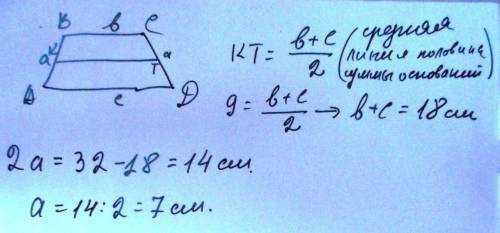 B b C
K a T a
A c D
KT = b+c/2 (средняя линия половина суммы оснований)
9 = b+c/2 → b+c = 18 см
2a = 32 - 18 = 14 см.
a = 14 : 2 = 7 см.